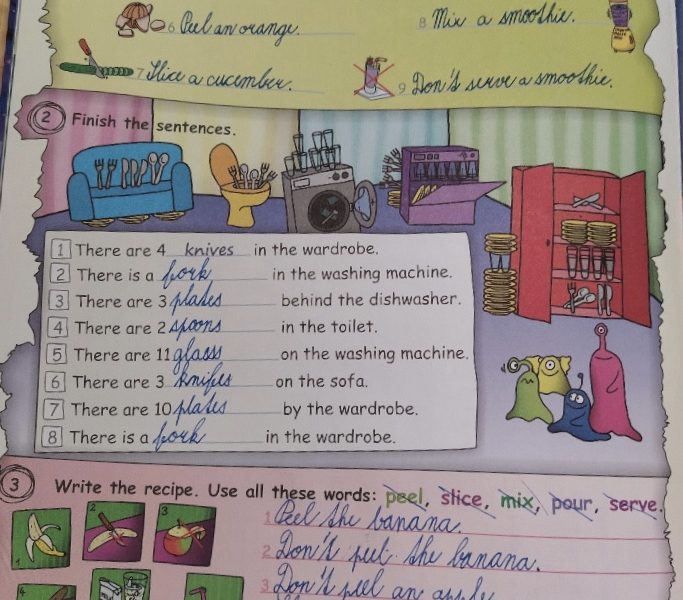 6 Peel an orange.
8 Mix a smoothie.
7 Slice a cucember.
9 Don't serve a smoothie.
2 Finish the sentences.
1 There are 4 knives in the wardrobe.
2 There is a fork in the washing machine.
3 There are 3 plates behind the dishwasher.
4 There are 2 spoons in the toilet.
5 There are 11 glass on the washing machine.
6 There are 3 knifes on the sofa.
7 There are 10 plates by the wardrobe.
8 There is a fork in the wardrobe.
3 Write the recipe. Use all these words: peel, slice, mix, pour, serve.
1 Peel the banana.
2 Don't the banana.
3 Don't peel an apple
1
2
3
4